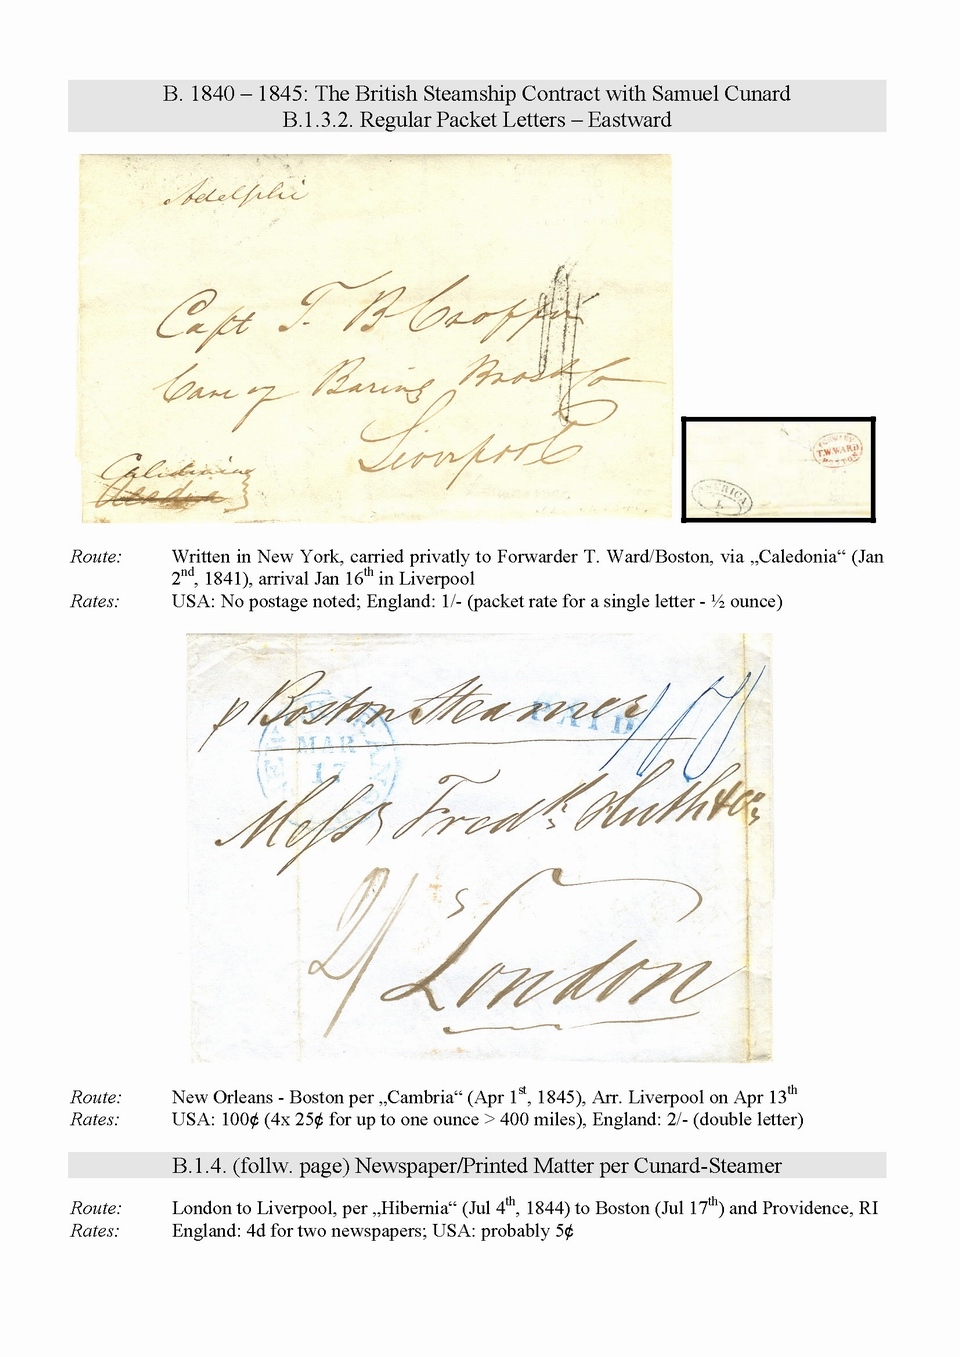 B. 1840 – 1845: The British Steamship Contract with Samuel Cunard
B.1.3.2. Regular Packet Letters – Eastward
Adelphi
Capt T. B Croffin
Care of Baring Bros & Co
Liverpool
Caledonia
Acadia
T.W.WARD
BOSTON
AMERICA
L
Route: Written in New York, carried privatly to Forwarder T. Ward/Boston, via „Caledonia“ (Jan
2nd, 1841), arrival Jan 16th in Liverpool
Rates: USA: No postage noted; England: 1/- (packet rate for a single letter - ½ ounce)
p Boston Steamer
PAID
MAR
17
Mess Fredk Huth & Co
2/
London
Route: New Orleans - Boston per „Cambria“ (Apr 1st, 1845), Arr. Liverpool on Apr 13th
Rates: USA: 100¢ (4x 25¢ for up to one ounce > 400 miles), England: 2/- (double letter)
B.1.4. (follw. page) Newspaper/Printed Matter per Cunard-Steamer
Route: London to Liverpool, per „Hibernia“ (Jul 4th, 1844) to Boston (Jul 17th) and Providence, RI
Rates: England: 4d for two newspapers; USA: probably 5¢